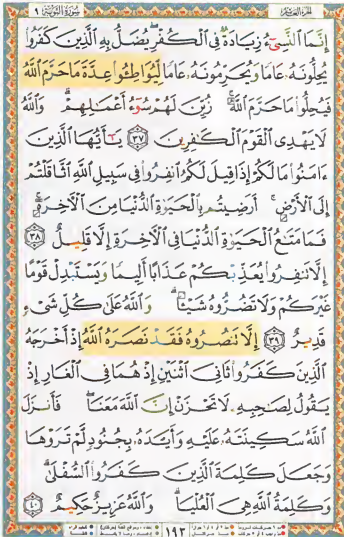 سورة التوبة ٩
الجزء العاشر
إِنَّمَا ٱلنَّسِىٓءُ زِيَادَةٌ فِى ٱلْكُفْرِ يُضَلُّ بِهِ ٱلَّذِينَ كَفَرُوا۟
يُحِلُّونَهُۥ عَامًا وَيُحَرِّمُونَهُۥ عَامًا لِّيُوَاطِـُٔوا۟ عِدَّةَ مَا حَرَّمَ ٱللَّهُ
فَيُحِلُّوا۟ مَا حَرَّمَ ٱللَّهُ زُيِّنَ لَهُمْ سُوٓءُ أَعْمَـٰلِهِمْ وَٱللَّهُ
لَا يَهْدِى ٱلْقَوْمَ ٱلْكَـٰفِرِينَ ٣٧ يَـٰٓأَيُّهَا ٱلَّذِينَ
ءَامَنُوا۟ مَا لَكُمْ إِذَا قِيلَ لَكُمُ ٱنفِرُوا۟ فِى سَبِيلِ ٱللَّهِ ٱثَّاقَلْتُمْ
إِلَى ٱلْأَرْضِ أَرَضِيتُم بِٱلْحَيَوٰةِ ٱلدُّنْيَا مِنَ ٱلْـَٔاخِرَةِ
فَمَا مَتَـٰعُ ٱلْحَيَوٰةِ ٱلدُّنْيَا فِى ٱلْـَٔاخِرَةِ إِلَّا قَلِيلٌ ٣٨
إِلَّا تَنفِرُوا۟ يُعَذِّبْكُمْ عَذَابًا أَلِيمًا وَيَسْتَبْدِلْ قَوْمًا
غَيْرَكُمْ وَلَا تَضُرُّوهُ شَيْـًٔا وَٱللَّهُ عَلَىٰ كُلِّ شَىْءٍ
قَدِيرٌ ٣٩ إِلَّا تَنصُرُوهُ فَقَدْ نَصَرَهُ ٱللَّهُ إِذْ أَخْرَجَهُ
ٱلَّذِينَ كَفَرُوا۟ ثَانِىَ ٱثْنَيْنِ إِذْ هُمَا فِى ٱلْغَارِ إِذْ
يَقُولُ لِصَـٰحِبِهِۦ لَا تَحْزَنْ إِنَّ ٱللَّهَ مَعَنَا فَأَنزَلَ
ٱللَّهُ سَكِينَتَهُۥ عَلَيْهِ وَأَيَّدَهُۥ بِجُنُودٍ لَّمْ تَرَوْهَا
وَجَعَلَ كَلِمَةَ ٱلَّذِينَ كَفَرُوا۟ ٱلسُّفْلَىٰ
وَكَلِمَةُ ٱللَّهِ هِىَ ٱلْعُلْيَا وَٱللَّهُ عَزِيزٌ حَكِيمٌ ٤٠
١٩٣